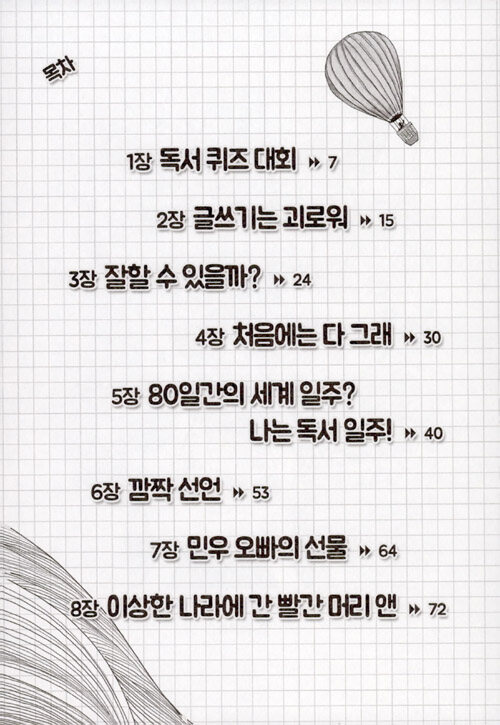 목차
1장 독서 퀴즈 대회 7
2장 글쓰기는 괴로워 15
3장 잘할 수 있을까? 24
4장 처음에는 다 그래 30
5장 80일간의 세계 일주?
나는 독서 일주! 40
6장 깜짝 선언 53
7장 민우 오빠의 선물 64
8장 이상한 나라에 간 빨간 머리 앤 72